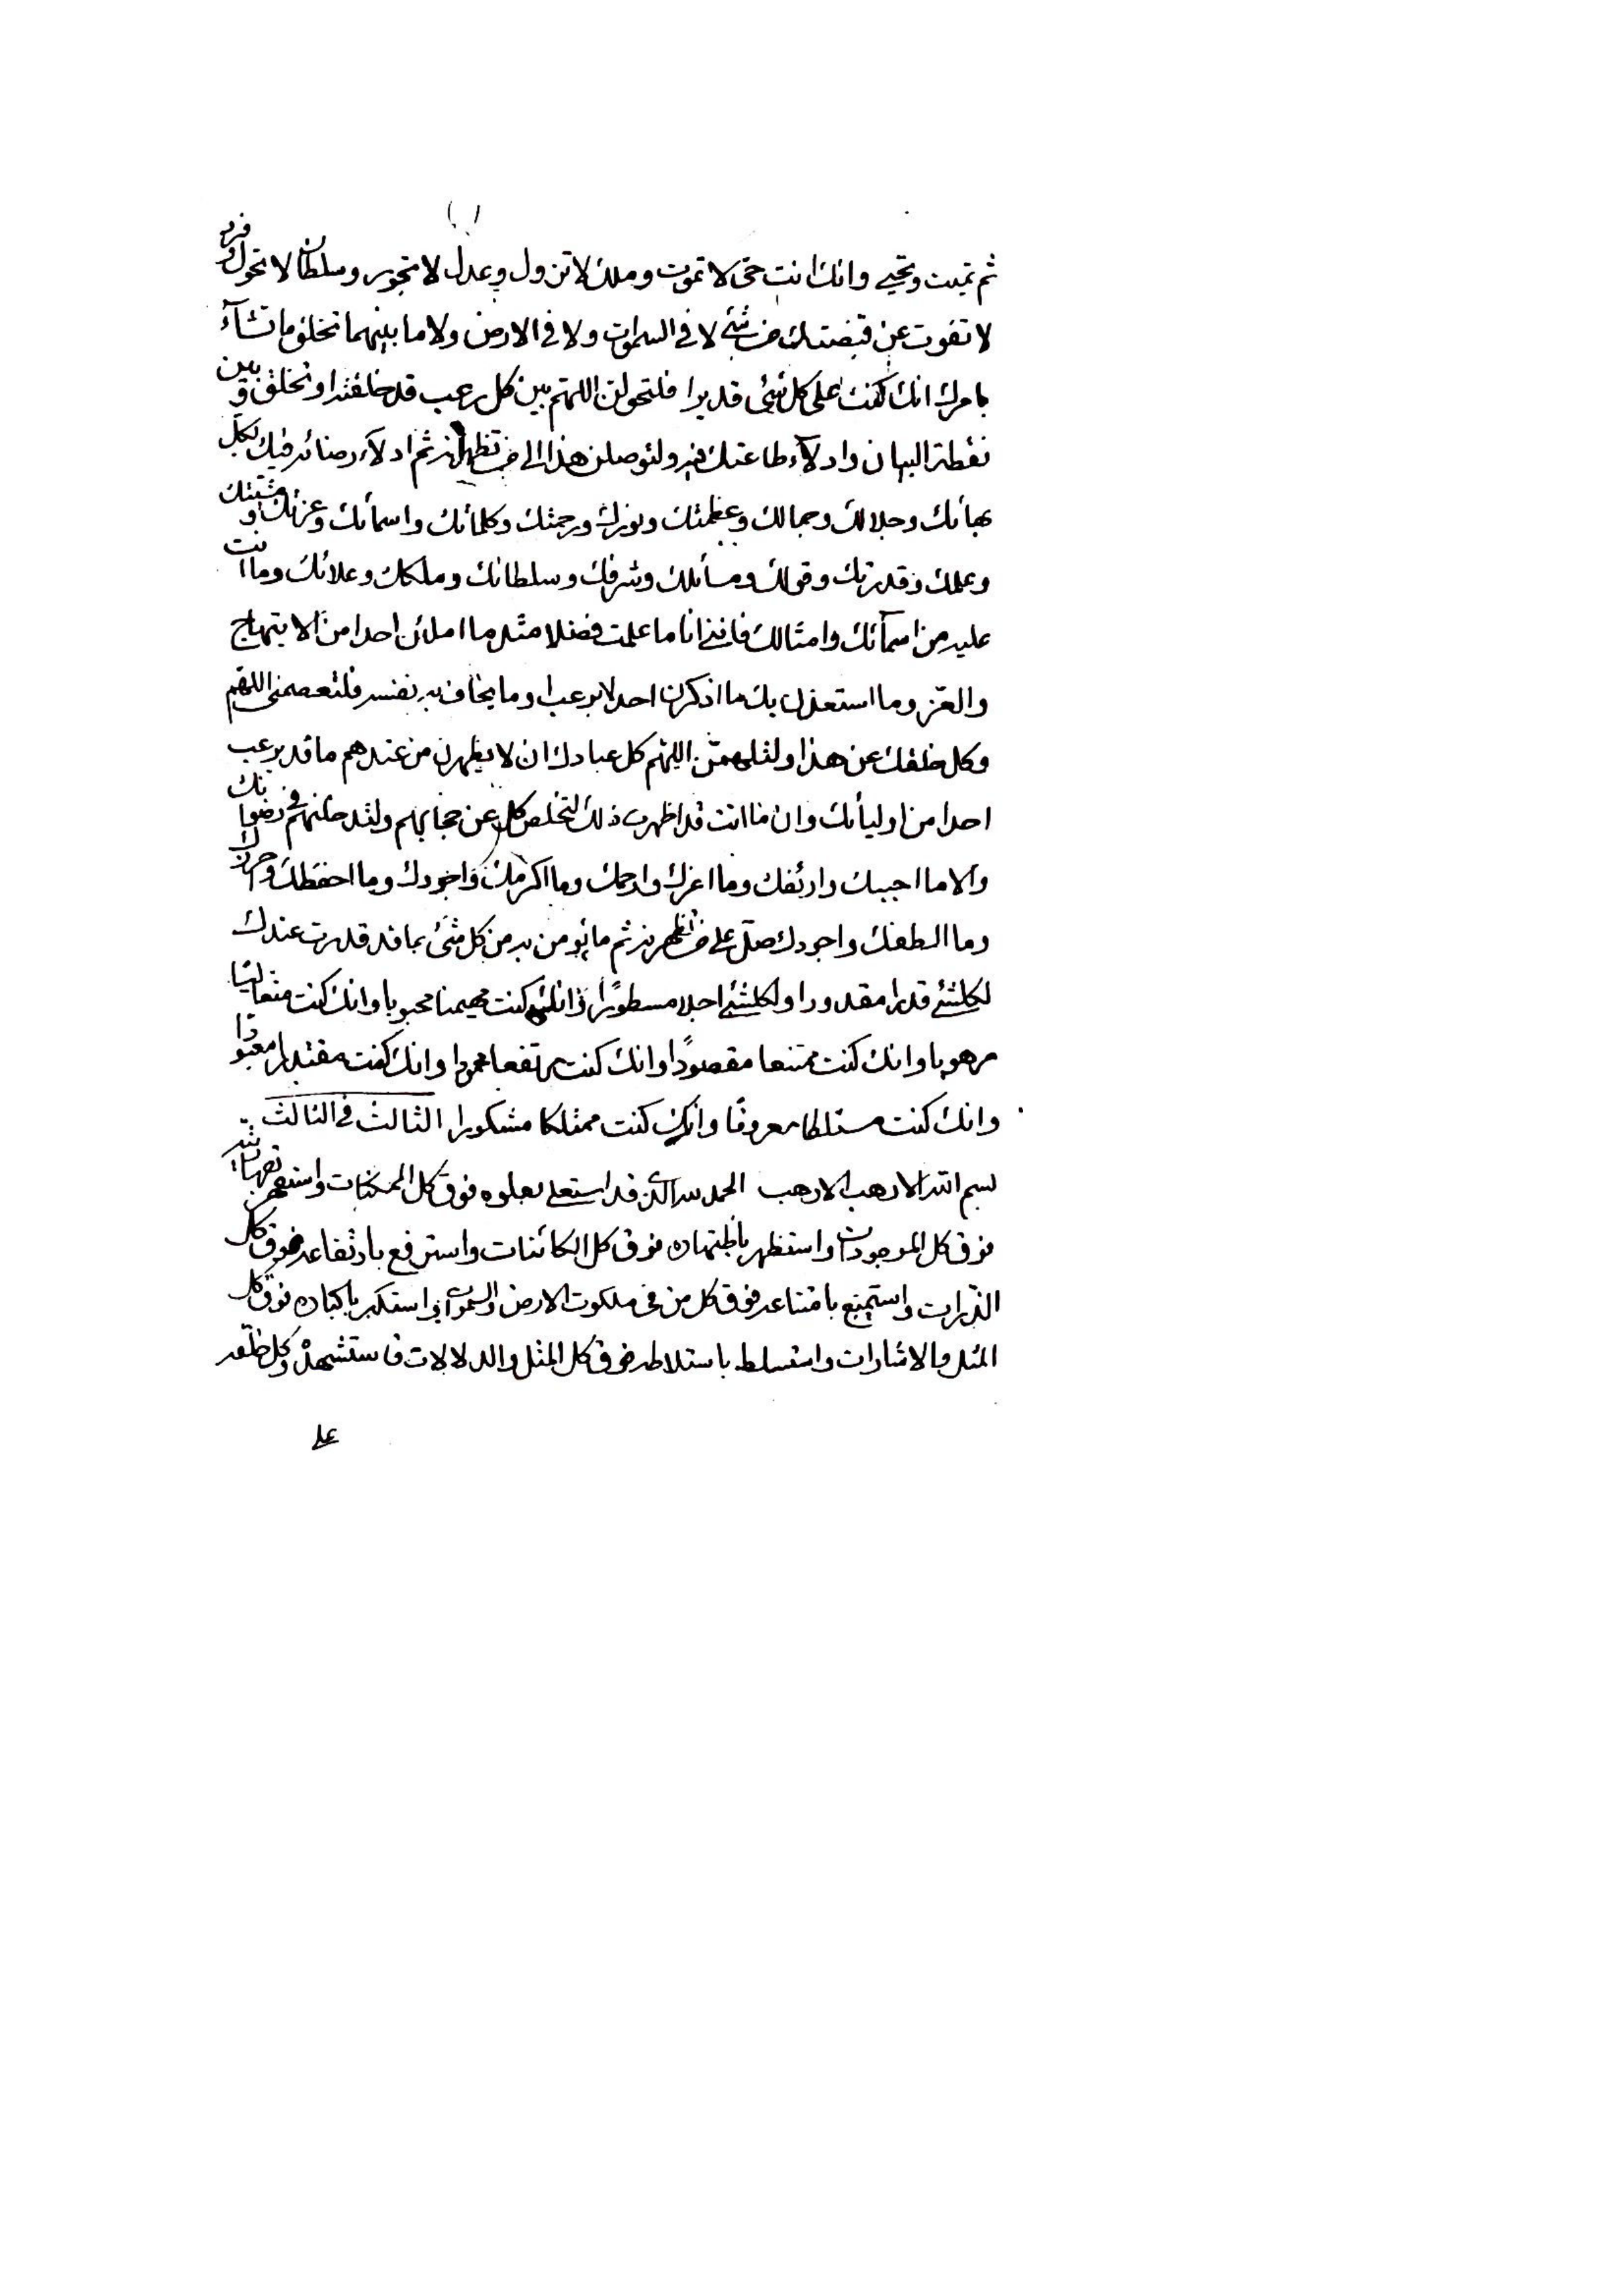 ثم تميت وتحيي وانك انت حي لا تموت وملك لا تزول وعدل لا تجور وسلطان لا تحول وفرد
لا تفوت عن قبضتك من شئ لا في السموات ولا في الارض ولا ما بينهما تخلق ما تشآء
بامرك انك كنت على كل شئ قديرا فلتحولن اللهم بين كل رعب قد خلقته او تخلق وبين
نقطة البيان وادلآء طاعتك فيه ولتوصلن هذا الى من تظهرنه ثم ادلآء رضائه فيك بكل
بهائك وجلالك وجمالك وعظمتك ونورك ورحمتك وكلماتك واسمائك وعزتك ومشيتك
وعلمك وقدرتك وقولك ومسائلك وشرفك وسلطانك وملكك وعلائك وما انت
عليه من اسمآئك وامثالك فانني انا ما علمت فضلا مثل ما املأن احدا من الابتهاج
والعز وما استعذن بك ما اذكرن احدا برعب او ما يخاف به نفسه فلتعصمني اللهم
وكل خلقك عن هذا ولتلهمن اللهم كل عبادك ان لا يظهرن من عندهم ما قد يرعب
احدا من اوليائك وان ما انت قد اظهرت ذلك لتخلص كل عن حجابهم ولتدخلنهم في رضوانك
والا ما احببك وارئفك وما اعزك وارحمك وما اكرمك واجودك وما احفظك واحرزك
وما الطفك واجودك صل على من تظهرنه ثم ما يؤمن به من كل شئ بما قد قدرت عندك
لكلشئ قدرا مقدورا ولكلشئ اجلا مسطورًا اذ انك كنت مهيمنا محبوبا وانك كنت متعاليا
مرهوبا وانك كنت ممتنعا مقصودًا وانك كنت مرتفعا محمودا وانك كنت مقتدرا معبودا
وانك كنت مستلطا معروفا وانك كنت ممتلكا مشكورا الثالث في الثالث
بسم الله الارهب الارهب الحمد لله الذي قد استعلى بعلوه فوق كل الممكنات واستقهر باقتهاره
فوق كل الموجودات واستظهر باظتهاره فوق كل الكائنات واسترفع بارتفاعه فوق كل
الذرات واستمنع بامتناعه فوق كل من في ملكوت الارض والسموات واستكبر باكتباره فوق كل
المثل والاشارات واستسلط باستلاطه فوق كل المثل والدلالات فاستشهده وكل خلقه
على